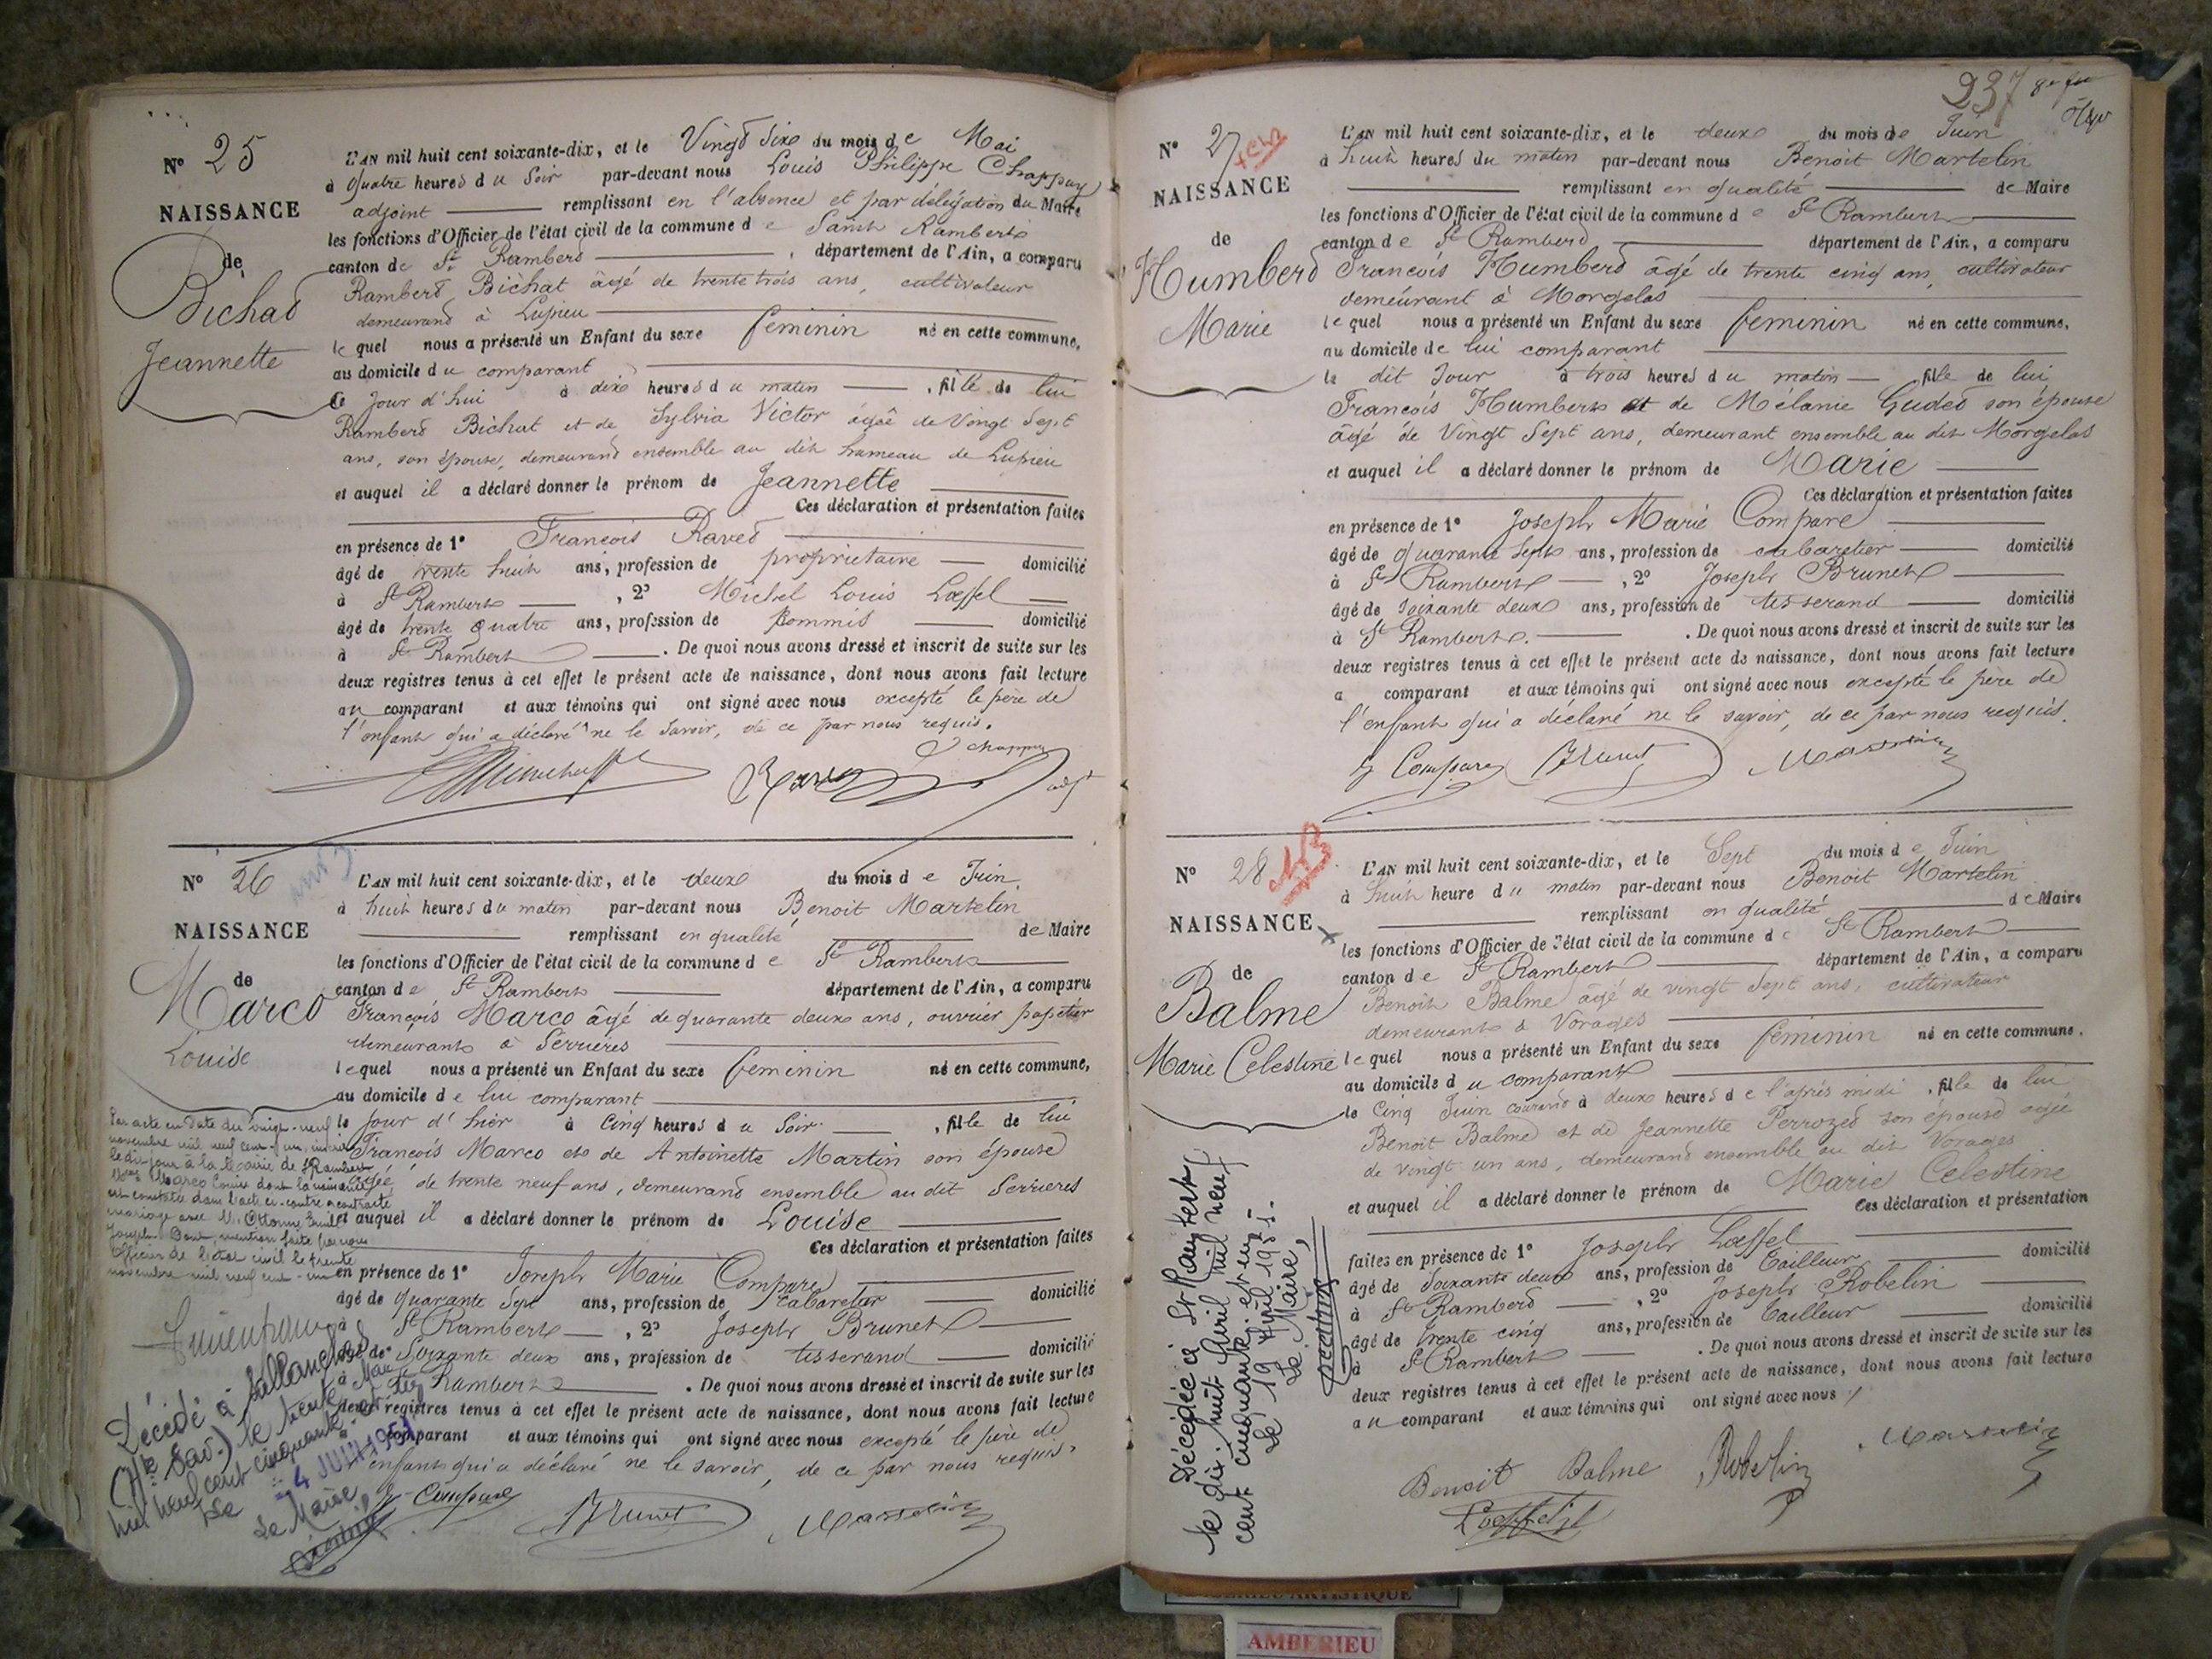 Nº 25
NAISSANCE
de
Bichat
Jeannette
L'AN mil huit cent soixante-dix, et le Vingt Six du mois de Mai
à quatre heures du Soir par-devant nous Louis Philippe Chappuy
adjoint remplissant en l'absence et par délégation du Maire
les fonctions d'Officier de l'état civil de la commune de Saint Rambert
canton de St Rambert, département de l'Ain, a comparu
Rambert Bichat âgé de trente trois ans, cultivateur
demeurant à Lupieu
lequel nous a présenté un Enfant du sexe feminin né en cette commune,
au domicile du comparant
ce Jour d'hui à dix heures du matin, fille de lui
Rambert Bichat et de Sylvia Victor agée de Vingt Sept
ans, son épouse, demeurant ensemble au dit hameau de Lupieu
et auquel il a déclaré donner le prénom de Jeannette
Ces déclaration et présentation faites
en présence de 1º François Ravet
âgé de trente huit ans, profession de propriétaire domicilié
à St Rambert, 2º Michel Louis Lœffel
âgé de trente quatre ans, profession de commis domicilié
à St Rambert. De quoi nous avons dressé et inscrit de suite sur les
deux registres tenus à cet effet le présent acte de naissance, dont nous avons fait lecture
au comparant et aux témoins qui ont signé avec nous excepté le père de
l'enfant qui a déclaré ne le savoir, de ce par nous requis.
Chappuy
Ravet
adjt
Nº 26
NAISSANCE
de
Marco
Louise
L'AN mil huit cent soixante-dix, et le deux du mois de Juin
à huit heures du matin par-devant nous Benoit Martelin
remplissant en qualité de Maire
les fonctions d'Officier de l'état civil de la commune de St Rambert
canton de St Rambert département de l'Ain, a comparu
François Marco âgé de quarante deux ans, ouvrier papetier
demeurant à Serrières
lequel nous a présenté un Enfant du sexe feminin né en cette commune,
au domicile de lui comparant
le jour d'hier à Cinq heures du Soir, fille de lui
François Marco et de Antoinette Martin son épouse
agée de trente neuf ans, demeurant ensemble au dit Serrieres
et auquel il a déclaré donner le prénom de Louise
Ces déclaration et présentation faites
en présence de 1º Joseph Marie Compare
âgé de quarante Sept ans, profession de cabaretier domicilié
à St Rambert, 2º Joseph Brunet
âgé de Soixante deux ans, profession de tisserand domicilié
à St Rambert. De quoi nous avons dressé et inscrit de suite sur les
deux registres tenus à cet effet le présent acte de naissance, dont nous avons fait lecture
comparant et aux témoins qui ont signé avec nous excepté le père de
l'enfant qui a déclaré ne le savoir, de ce par nous requis.
Compare Brunet Martelin
Par acte en date du vingt-neuf
novembre mil neuf cent-un, inscrit
le dit jour à la Mairie de St Rambert
Marco Louise dont la naissance
est constatée dans l'acte ci-contre a contracté
mariage avec M.
Joseph mention faite par nous
Officier de l'état civil le trente
novembre mil neuf cent-un
Décédé à Sallanches
(Hte Sav.) le trente Mai
mil neuf cent cinquante et un
Le 4 JUIN 1951
Le Maire
237
Nº 27
NAISSANCE
de
Humbert
Marie
L'AN mil huit cent soixante-dix, et le deux du mois de Juin
à huit heures du matin par-devant nous Benoit Martelin
remplissant en qualité de Maire
les fonctions d'Officier de l'état civil de la commune de St Rambert
canton de St Rambert département de l'Ain, a comparu
François Humbert âgé de trente cinq ans, cultivateur
demeurant à Morgelas
lequel nous a présenté un Enfant du sexe feminin né en cette commune,
au domicile de lui comparant
le dit Jour à trois heures du matin fille de lui
François Humbert et de Mélanie Gudet son épouse
âgé de Vingt Sept ans, demeurant ensemble au dit Morgelas
et auquel il a déclaré donner le prénom de Marie
Ces déclaration et présentation faites
en présence de 1º Joseph Marie Compare
âgé de quarante sept ans, profession de cabaretier domicilié
à St Rambert, 2º Joseph Brunet
âgé de soixante deux ans, profession de tisserand domicilié
à St Rambert. De quoi nous avons dressé et inscrit de suite sur les
deux registres tenus à cet effet le présent acte de naissance, dont nous avons fait lecture
a comparant et aux témoins qui ont signé avec nous excepté le père de
l'enfant qui a déclaré ne le savoir, de ce par nous requis.
Compare Brunet Martelin
Nº 28
NB
NAISSANCE
de
Balme
Marie Celestine
L'AN mil huit cent soixante-dix, et le Sept du mois de Juin
à huit heure du matin par-devant nous Benoit Martelin
remplissant en qualité de Maire
les fonctions d'Officier de l'état civil de la commune de St Rambert
canton de St Rambert département de l'Ain, a comparu
Benoit Balme âgé de vingt Sept ans, cultivateur
demeurant à Vorages
lequel nous a présenté un Enfant du sexe feminin né en cette commune.
au domicile du comparant
le Cinq Juin courant à deux heures de l'après midi, fille de lui
Benoit Balme et de Jeannette Perrozet son épouse agée
de vingt un ans, demeurant ensemble au dit Vorages
et auquel il a déclaré donner le prénom de Marie Celestine
Ces déclaration et présentation
faites en présence de 1º Joseph Lœffel
âgé de Soixante deux ans, profession de Tailleur domicilié
à St Rambert, 2º Joseph Robelin
âgé de trente cinq ans, profession de Tailleur domicilié
à St Rambert. De quoi nous avons dressé et inscrit de suite sur les
deux registres tenus à cet effet le présent acte de naissance, dont nous avons fait lecture
au comparant et aux témoins qui ont signé avec nous
Benoit Balme Robelin Martelin
Décédée à St Rambert
le dix-huit Avril mil neuf
cent cinquante et un
Le 19 Avril 1951.
Le Maire,
AMBERIEU ARTISTIQUE
AMBERIEU